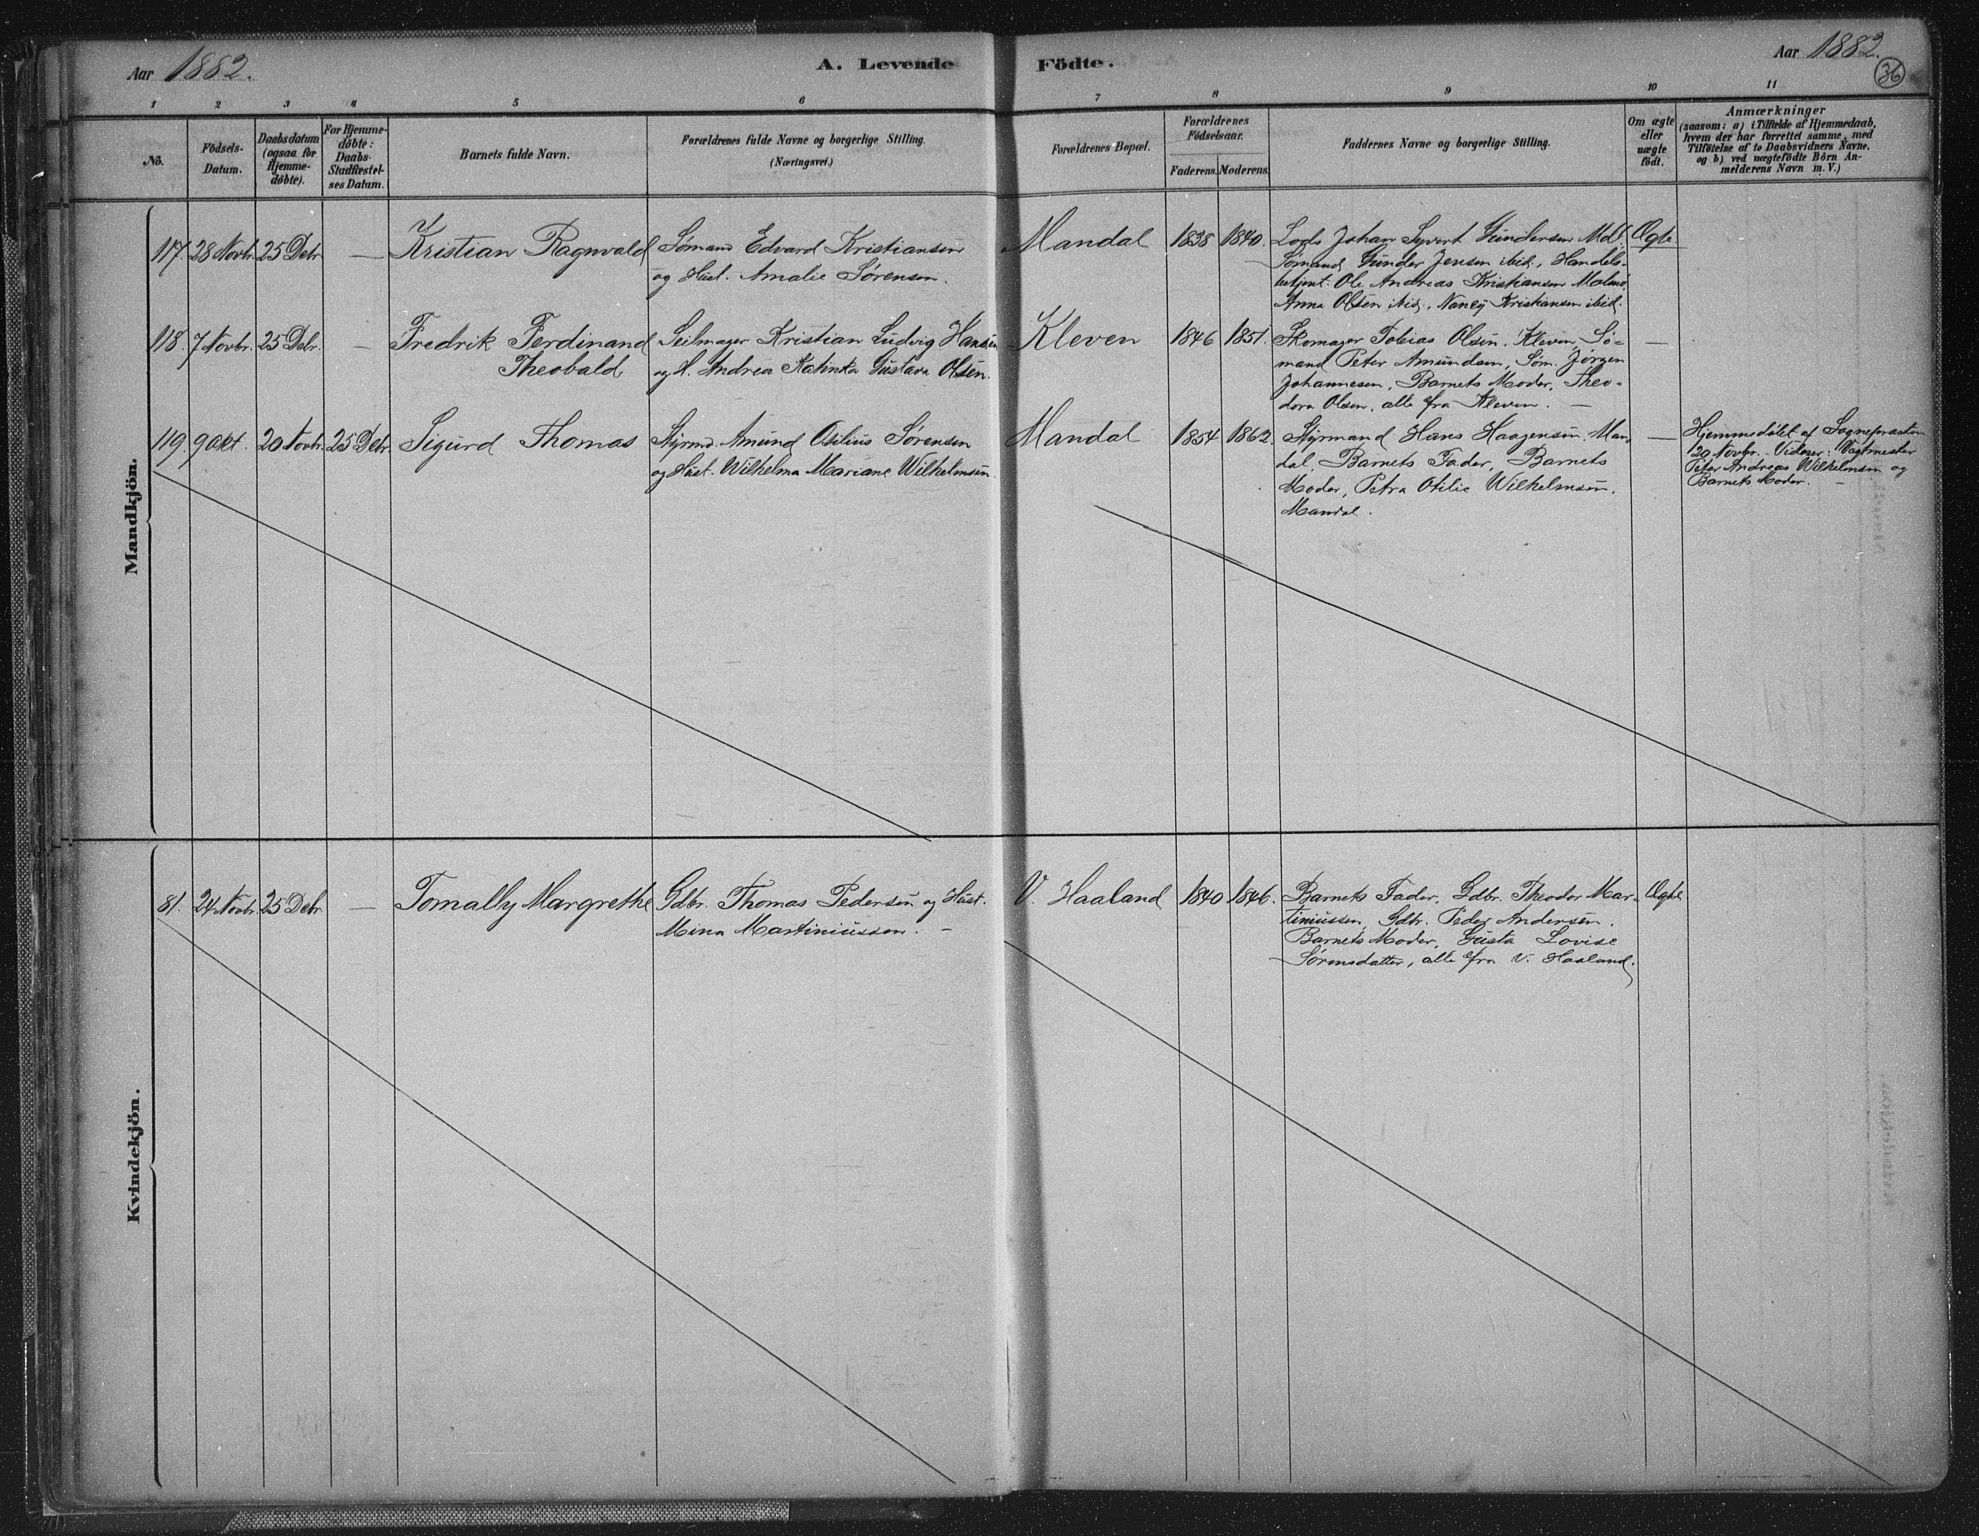 Aar 1882.
A. Levende Födte.
Aar 1882.
36
1 2 3 4 5 6 7 8 9 10 11
No.
Födsels-
Datum.
Daabsdatum
(ogsaa for
Hjemme-
døbte).
For Hjemme-
døbte:
Daabs-
Stadfæstel-
ses Datum.
Barnets fulde Navn.
Forældrenes fulde Navne og borgerlige Stilling.
(Næringsvei.)
Forældrenes Bopæl.
Forældrenes
Födselsaar.
Faderens. Moderens.
Faddernes Navne og borgerlige Stilling.
Om ægte
eller
uægte
födt.
Anmærkninger
(saasom: a) i Tilfælde af Hjemmedaab,
hvem der har forrettet samme, med
Tilföielse af to Daabsvidners Navne,
og b) ved uægtefödte Börn An-
melderens Navn m. V.)
Mandkjön.
117. 28 Novbr. 25 Debr. — Kristian Ragnvald
Sømand Edvard Kristiansen
og Hust. Amalie Sørensen.
Mandal 1838 1840.
Lods Johan Syvert Gundersen Mdl.
Sømand Gunder Jensen ibid., Handels-
betjent Ole Andreas Kristiansen
Anna Olsen ibid., Nancy Kristiansen ibid.
Ægte
118. 7 Novbr. 25 Debr. — Fredrik Ferdinand
Theobald
Seilmager Kristian Ludvig Hansen
og H. Andrea Katinka Gustava Olsen.
Kleven 1846 1851.
Skomager Tobias Olsen, Kleven, Sø-
mand Peter Amundsen, Søm. Jørgen
Johannesen, Barnets Moder, Theo-
dora Olsen, alle fra Kleven. —
—
119. 9 Okt. 20 Novbr. 25 Debr. Sigurd Thomas
Styrmd. Amund Otilius Sørensen
og Hust. Wilhelma Mariane Wilhelmsen.
Mandal 1854 1862.
Styrmand Hans Haagensen, Man-
dal, Barnets Fader, Barnets
Moder, Petra Otilie Wilhelmsen,
Mandal.
—
Hjemmedøbt af Sognepræsten
20 Novbr. Vidner: Vagtmester
Peter Andreas Wilhelmsen og
Barnets Moder. —
Kvindekjön.
81. 24 Novbr. 25 Debr. — Tomally Margrethe
Gdbr. Thomas Pedersen og Hust.
Mina Martiniussen. —
V. Haaland 1840 1846.
Barnets Fader, Gdbr. Theodor Mar-
tiniussen, Gdbr. Peder Andersen.
Barnets Moder, Gusta Lovise
Sørensdatter, alle fra V. Haaland.
Ægte